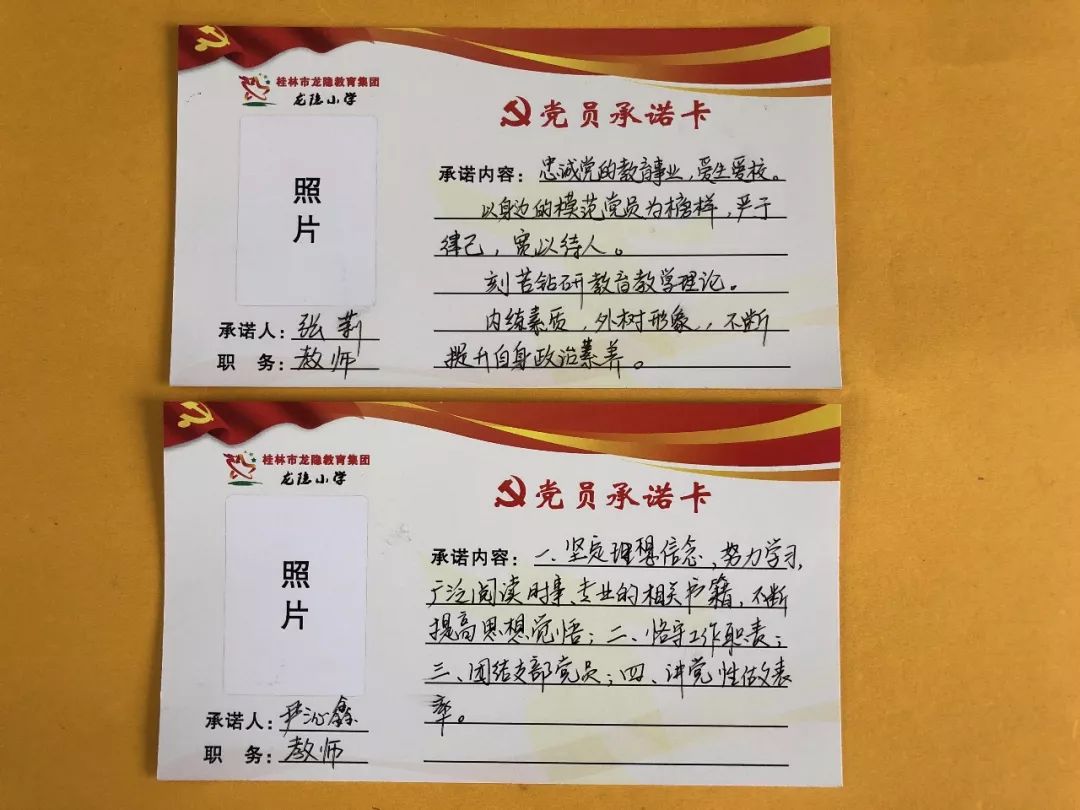 桂林市龙隐教育集团
龙隐小学
党员承诺卡
照片
承诺内容：忠诚党的教育事业，爱生爱校。
以身边的模范党员为榜样，严于
律己，宽以待人。
刻苦钻研教育教学理论。
内练素质，外树形象，不断
提升自身政治素养。
承诺人：张莉
职 务：教师
桂林市龙隐教育集团
龙隐小学
党员承诺卡
照片
承诺内容：一、坚定理想信念，努力学习，
广泛阅读时事、专业的相关书籍，不断
提高思想觉悟；二、恪守工作职责；
三、团结支部党员；四、讲党性做表
率。
承诺人：尹沁鑫
职 务：教师